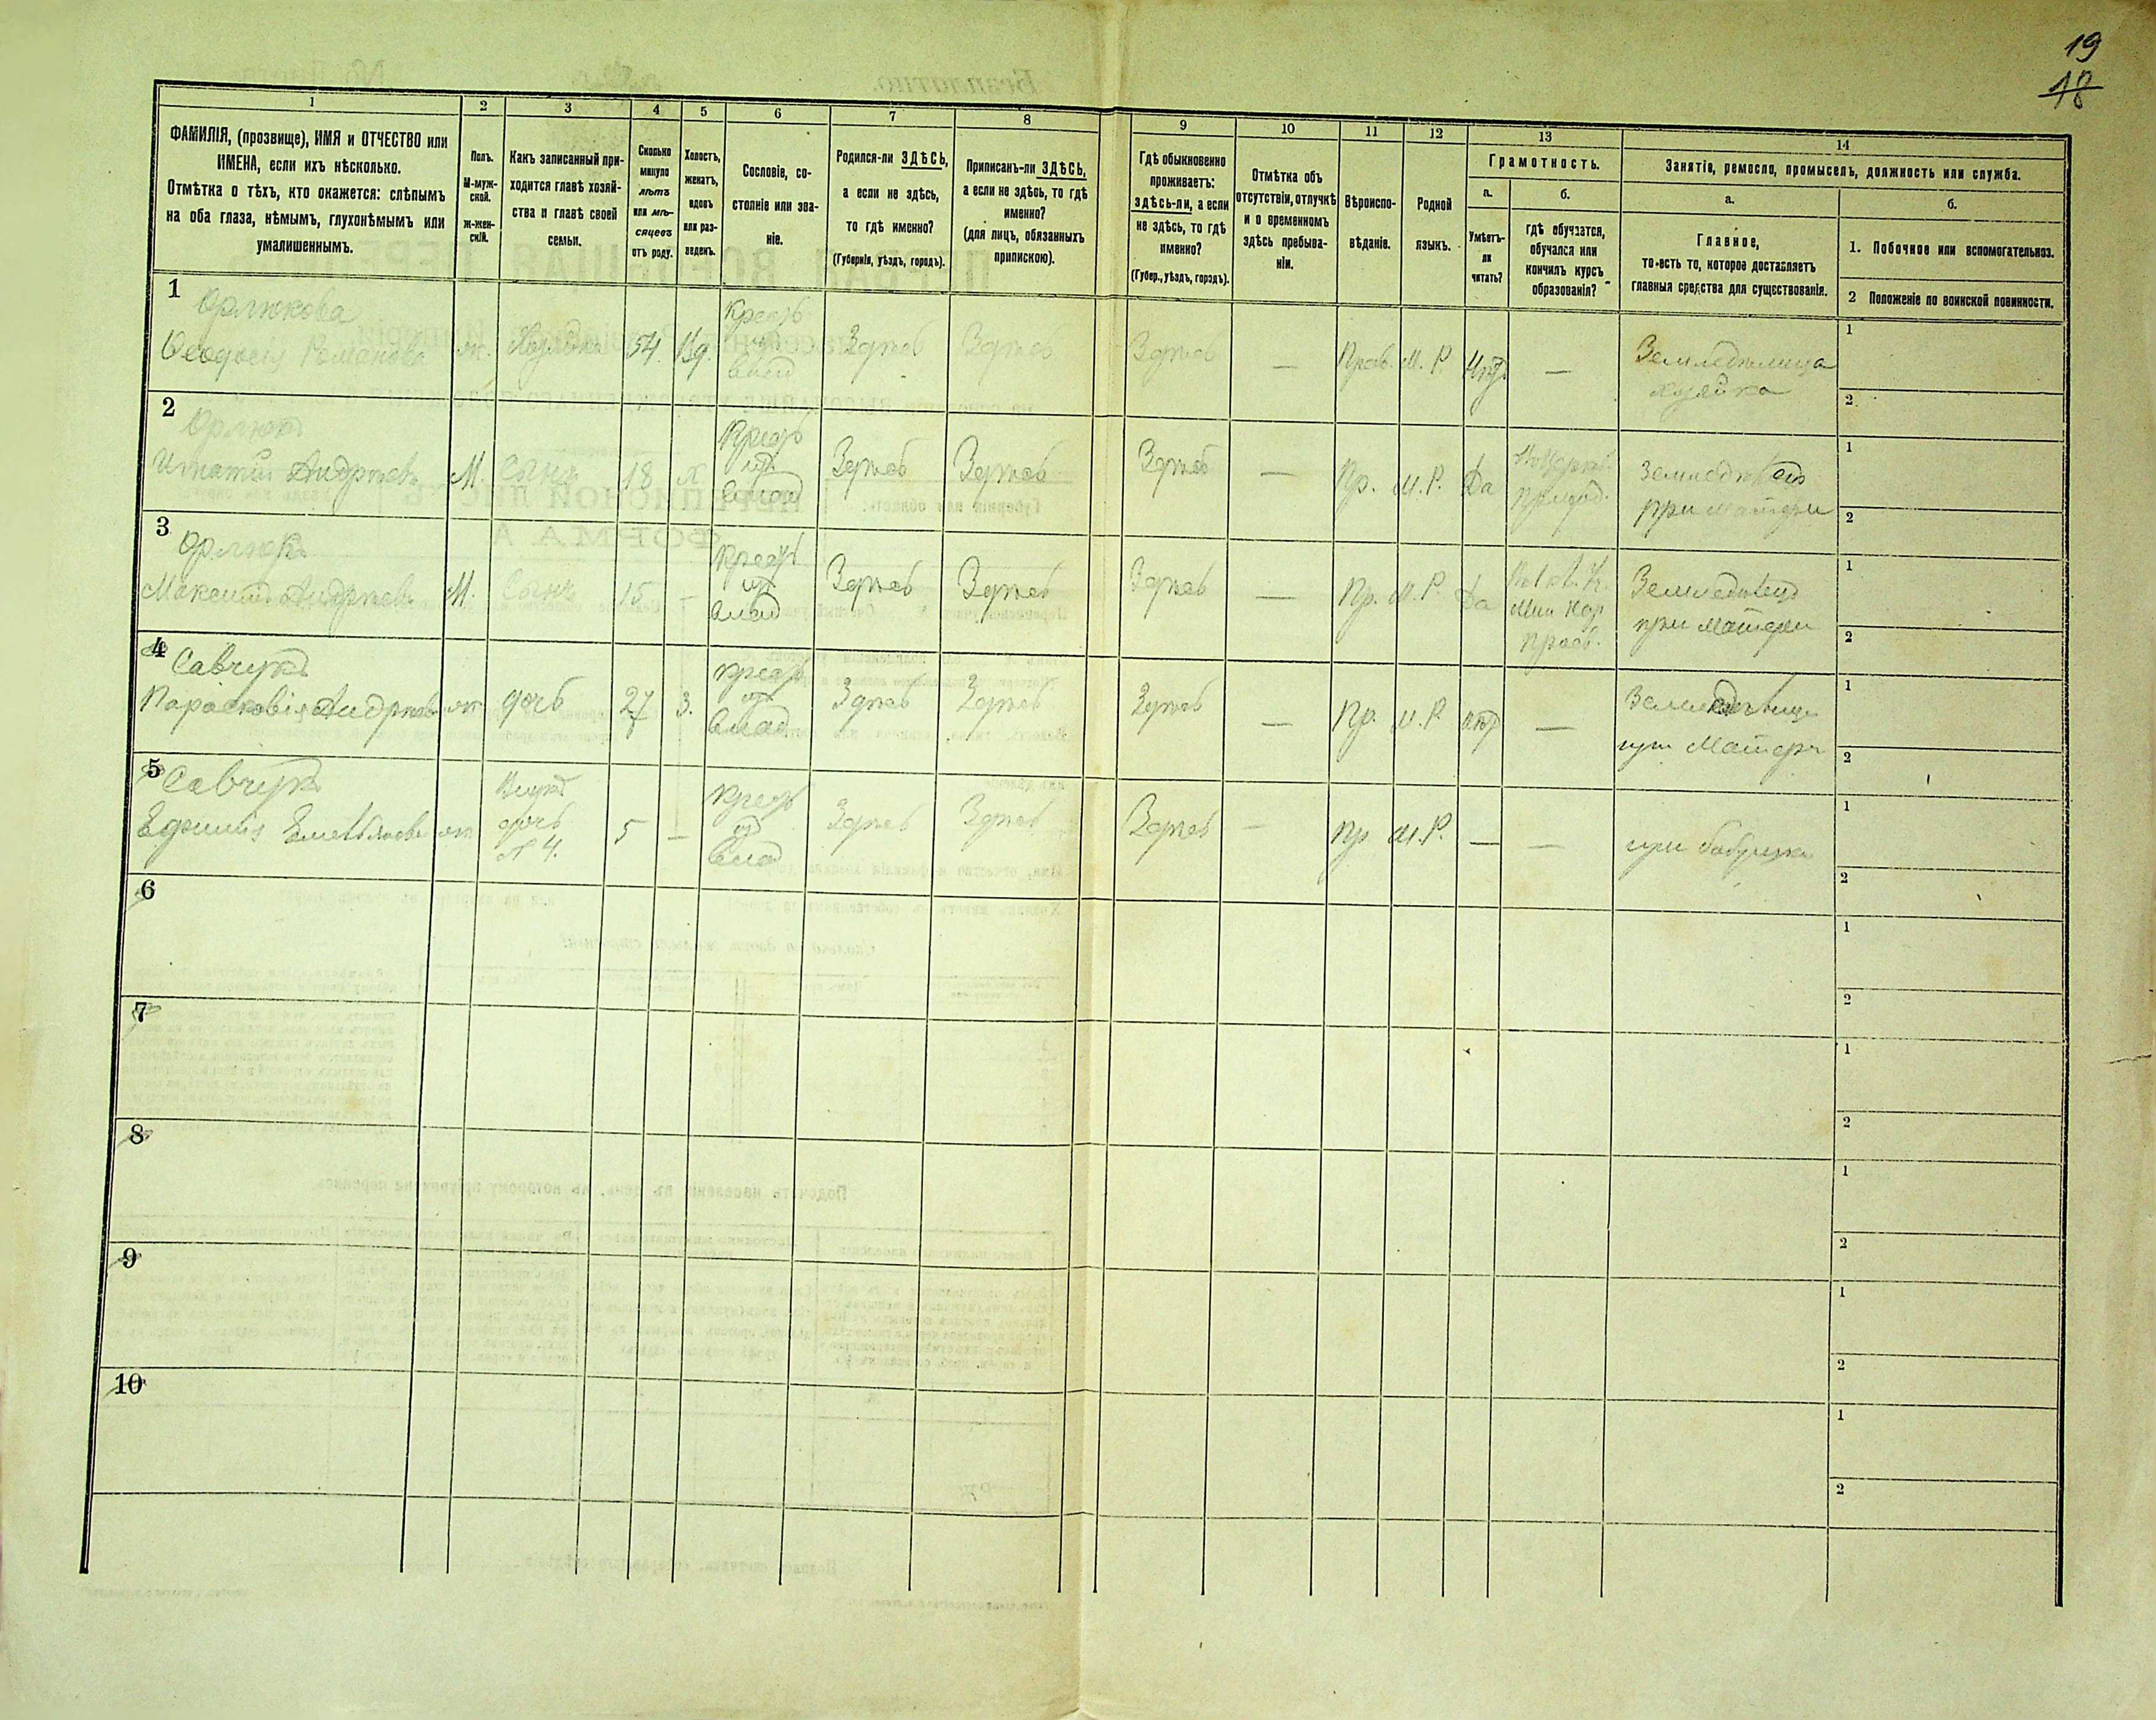 19
18
1
2
3
4
5
6
7
8
9
10
11
12
13
14
ФАМИЛІЯ, (прозвище), ИМЯ и ОТЧЕСТВО или
ИМЕНА, если ихъ нѣсколько.
Отмѣтка о тѣхъ, кто окажется: слѣпымъ
на оба глаза, нѣмымъ, глухонѣмымъ или
умалишеннымъ.
Полъ.
М-муж-
ской.
Ж-жен-
скій.
Какъ записанный при-
ходится главѣ хозяй-
ства и главѣ своей
семьи.
Сколько
минуло
лѣтъ
или мѣ-
сяцевъ
отъ роду.
Холостъ,
женатъ,
вдовъ
или раз-
веденъ.
Сословіе, со-
стояніе или зва-
ніе.
Родился-ли ЗДѢСЬ,
а если не здѣсь,
то гдѣ именно?
(Губернія, уѣздъ, городъ).
Приписанъ-ли ЗДѢСЬ,
а если не здѣсь, то гдѣ
именно?
(для лицъ, обязанныхъ
припискою).
Гдѣ обыкновенно
проживаетъ:
здѣсь-ли, а если
не здѣсь, то гдѣ
именно?
(Губер., уѣздъ, городъ).
Отмѣтка объ
отсутствіи, отлучкѣ
и о временномъ
здѣсь пребыва-
ніи.
Вѣроиспо-
вѣданіе.
Родной
языкъ.
Грамотность.
а.
Умѣетъ-
ли
читать?
б.
гдѣ обучается,
обучался или
кончилъ курсъ
образованія?
Занятіе, ремесло, промыселъ, должность или служба.
а.
Главное,
то-есть то, которое доставляетъ
главныя средства для существованія.
б.
1. Побочное или вспомогательное.
2 Положеніе по воинской повинности.
1
Орлюкова
Феодосія Романова
ж. Хозяйка 54. Вд.
Крест.
изъ
влад
Здѣсь Здѣсь Здѣсь — Прав. М. Р. Нѣтъ —
Земледѣлица
хозяйка
1
2
2
Орлюкъ
Игнатій Андрѣевъ М. Сынъ 18 х
Крест
изъ
влад
Здѣсь Здѣсь Здѣсь — Пр. М. Р. Да
Земледѣлецъ
при матери
1
2
3
Орлюкъ
Максимъ Андрѣевъ М. Сынъ 15 —
Крест
изъ
влад
Здѣсь Здѣсь Здѣсь — Пр. М. Р. Да
Мин Нар
Просв.
Земледѣлецъ
при матери
1
2
4
Савчукъ
Парасковія Андрѣева ж дочь 27 З.
крест
изъ
влад
Здѣсь Здѣсь Здѣсь — Пр. М. Р. нѣтъ —
при Матери
1
2
5
Савчукъ
Ефимія Емельянова ж
Внука
дочь
№ 4.
5 —
крест
изъ
влад
Здѣсь Здѣсь Здѣсь — Пр М. Р. — —
при бабушкѣ
1
2
6
1
2
7
1
2
8
1
2
9
1
2
10
1
2